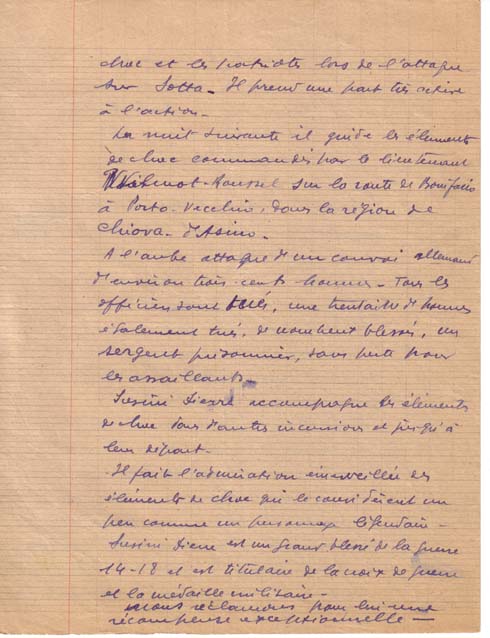 choc et les patriotes lors de l'attaque
sur Sotta - Il prend une part très active
à l'action -
La nuit suivante il guide les éléments
de choc commandés par le lieutenant
-Roussel sur la route de Bonifacio
à Porto-Vecchio, dans la région de
Chiova - d'Asino -
A l'aube attaque d'un convoi allemand
d'environ trois cents hommes - Tous les
officiers sont tués, une trentaine d'hommes
également tués, de nombreux blessés, un
sergent prisonnier, sans perte pour
les assaillants -
Susini Pierre accompagne les éléments
de choc dans d'autres incursions et jusqu'à
leur départ -
Il fait l'admiration émerveillée des
éléments de choc qui le considèrent un
peu comme un personnage légendaire -
Susini Pierre est un grand blessé de la guerre
14-18 et est titulaire de la croix de guerre
et la médaille militaire -
nous réclamons pour lui une
récompense exceptionnelle -